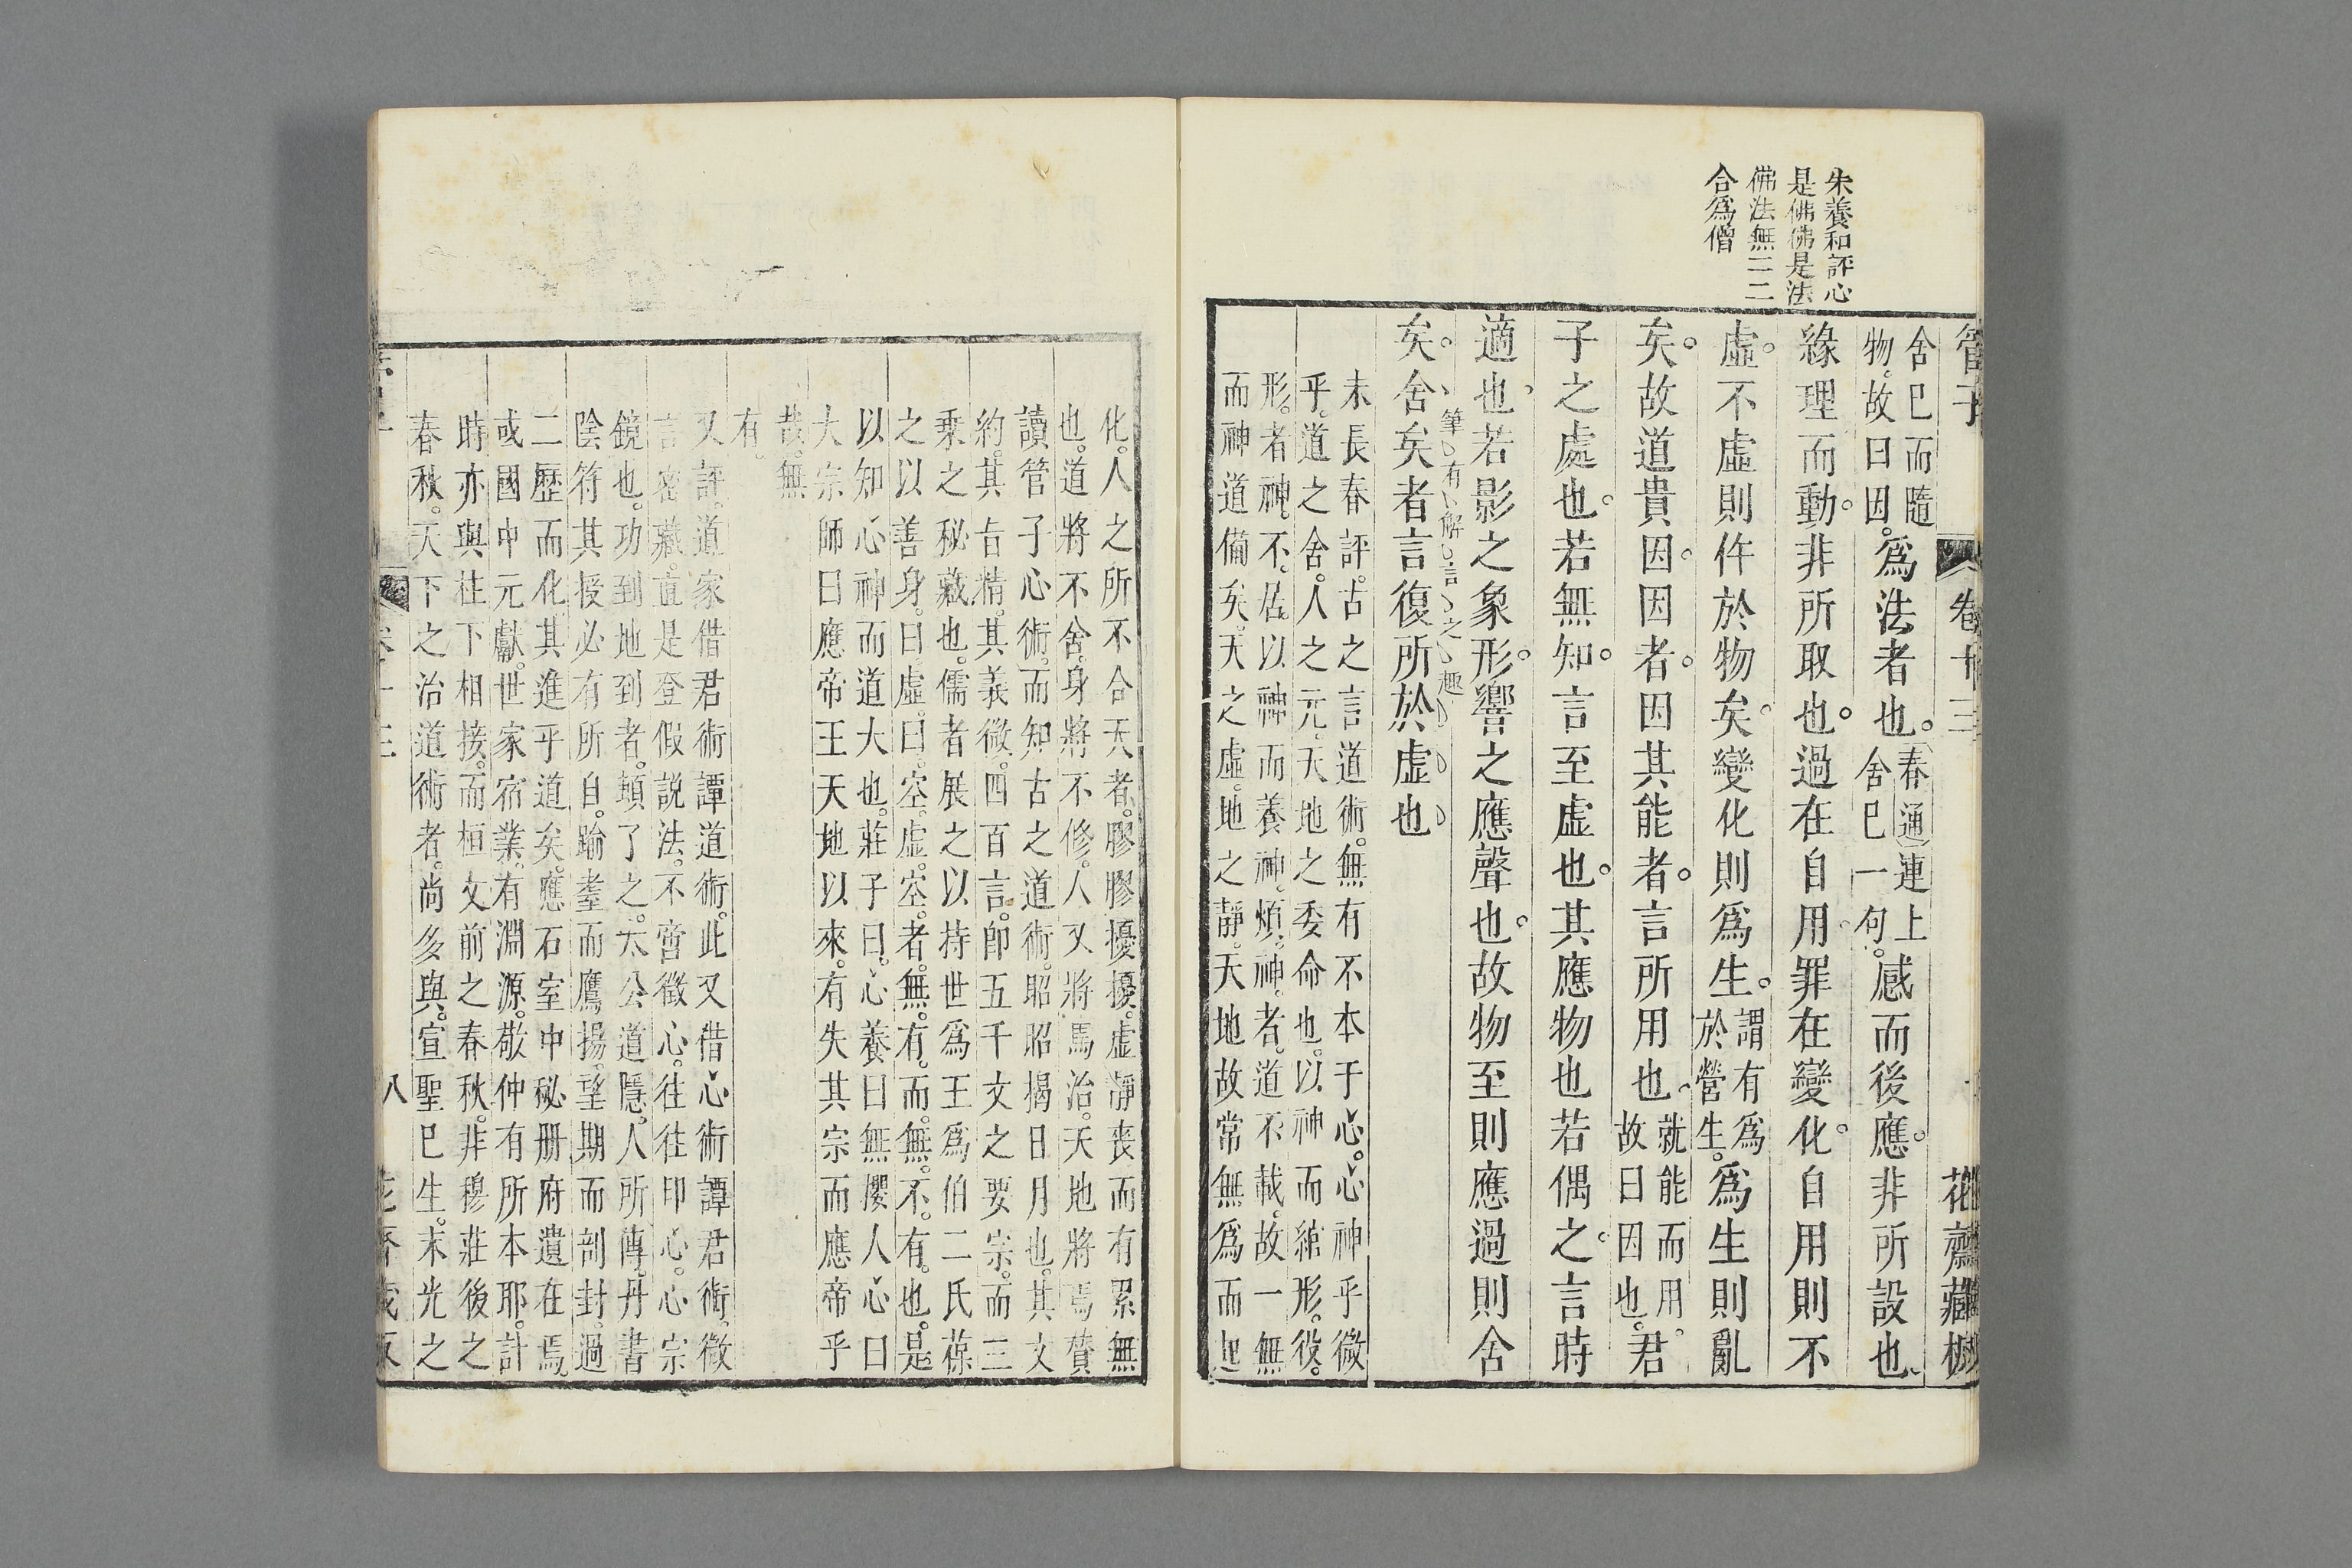 朱養和評心
是佛佛是法
佛法無二二
合爲僧
管子 卷十三 花齋藏板
舍已而隨
物故曰因爲法者也春通連上
舍已一句感而後應非所設也
緣理而動非所取也過在自用罪在變化自用則不
虛不虛則仵於物矣變化則爲生謂有爲
於營生爲生則亂
矣故道貴因因者因其能者言所用也就能而用
故曰因也君
子之處也若無知言至虛也其應物也若偶之言時
適也若影之象形響之應聲也故物至則應過則舍
筆有解言之趣
矣舍矣者言復所於虛也
朱長春評古之言道術無有不本于心心神乎微
乎道之舍人之元天地之委命也以神而綰形役
形者神不居以神而養神煩神者道不載故一無
而神道備矣天之虛地之靜天地故常無爲而
化人之所不合天者膠膠擾擾虛凈喪而有累無
也道將不舍身將不修人又將馬治天地將焉贊
讀管子心術而知古之道術昭昭揭日月也其文
約其旨精其義微四百言卽五千文之要宗而三
乗之秘藏也儒者展之以持世爲王爲伯二氏葆
之以善身曰虛曰空虛空者無有而無不有也是
以知心神而道大也莊子曰心養曰無攖人心曰
大宗師曰應帝王天地以來有失其宗而應帝乎
哉無
有
又評道家借君術譚道術此又借心術譚君術微
言密藏直是登假說法不啻徵心往往印心心宗
鏡也功到地到者頓了之太公道隱人所傳丹書
陰符其授必有所自踰耋而鷹揚望期而剖封過
二歷而化其進乎道矣應石室中秘册府遺在焉
或國中元獻世家宿業有淵源敬仲有所本耶計
時亦與柱下相接而桓文前之春秋非穆莊後之
春秋天下之治道術者尚多與宣聖已生末光之
八